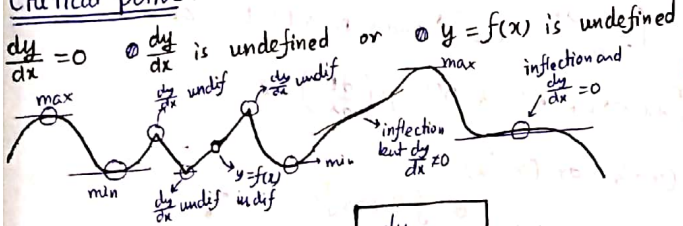 Critical poin
dy/dx = 0 dy/dx is undefined or y = f(x) is undefined
max
dy/dx undif
dy/dx undif
max
inflection and dy/dx = 0
min
dy/dx undif
y = f(x) in dif
min
inflection but dy/dx ≠ 0